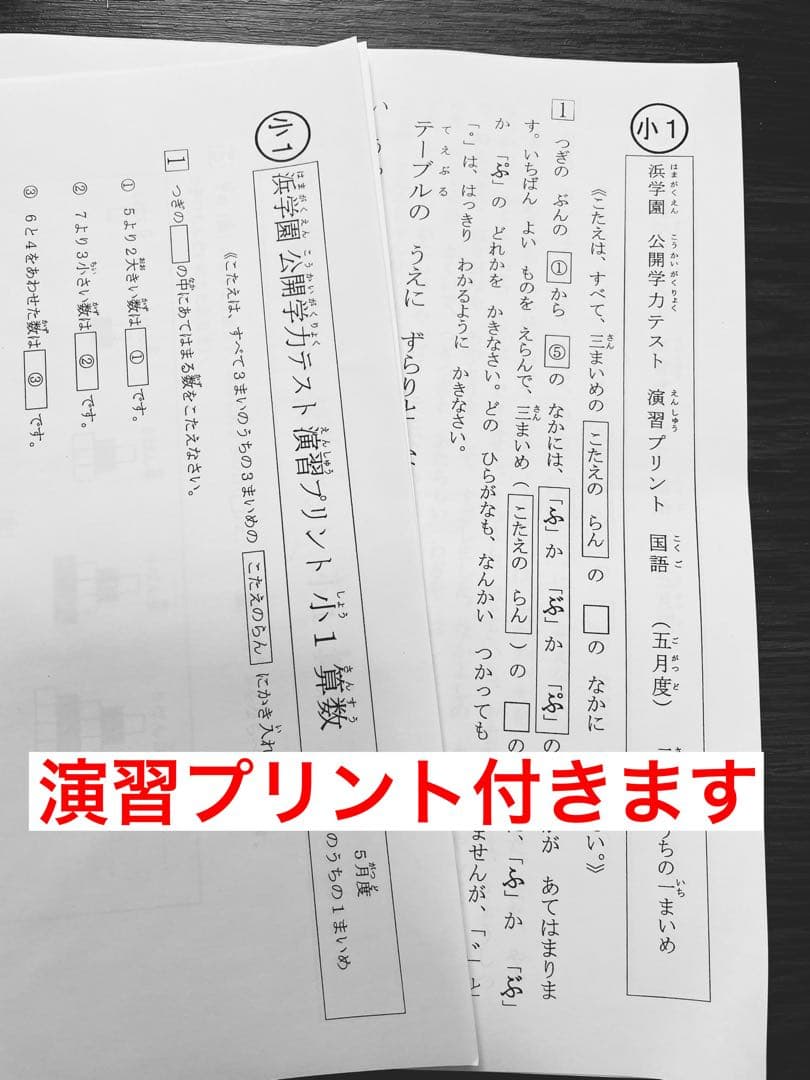 小1
浜学園 公開学力テスト 演習プリント 国語 (五月度)
うちの一まいめ
《こたえは、すべて、三まいめの こたえの らん の □ の なかに
い。》
1 つぎの ぶんの ①から ⑤の なかには、「ふ」か「ぶ」か「ぷ」の
が あてはまりま
す。いちばん よい ものを えらんで、三まいめ(こたえの らん)の □の
、「ふ」か「ぶ」
か「ぷ」の どれかを かきなさい。どの ひらがなも、なんかい つかっても
ませんが、「゛」と
「。」は、はっきり わかるように かきなさい。
テーブルの うえに ずらりと
小1
浜学園 公開学力テスト 演習プリント 小1 算数
5月度
のうちの1まいめ
《こたえは、すべて3まいのうちの3まいめの こたえのらん にかき入れ
1 つぎの□の中にあてはまる数をこたえなさい。
① 5より2大きい数は ① です。
② 7より3小さい数は ② です。
③ 6と4をあわせた数は ③ です。
演習プリント付きます